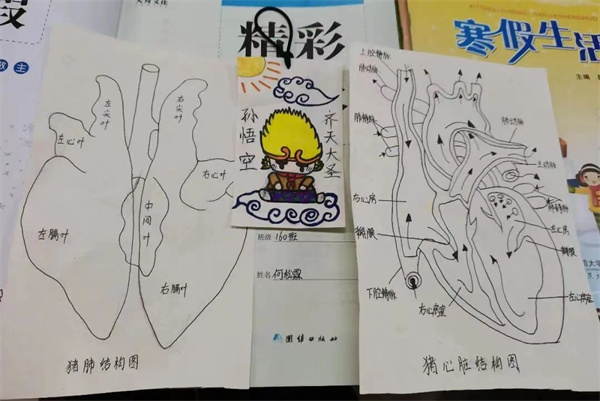 段
教 主
左尖叶
右尖叶
左心叶
右心叶
中间叶
左膈叶
右膈叶
猪肺结构图
精彩
孙悟空
齐天大圣
班级 160班
姓名 何松霖
团结出版社
寒假生活
主编
上腔静脉
肺动脉
肺静脉
右心房
瓣膜
下腔静脉
右心室
肺动脉
主动脉
肺静脉
左心房
瓣膜
左心室
猪心脏结构图